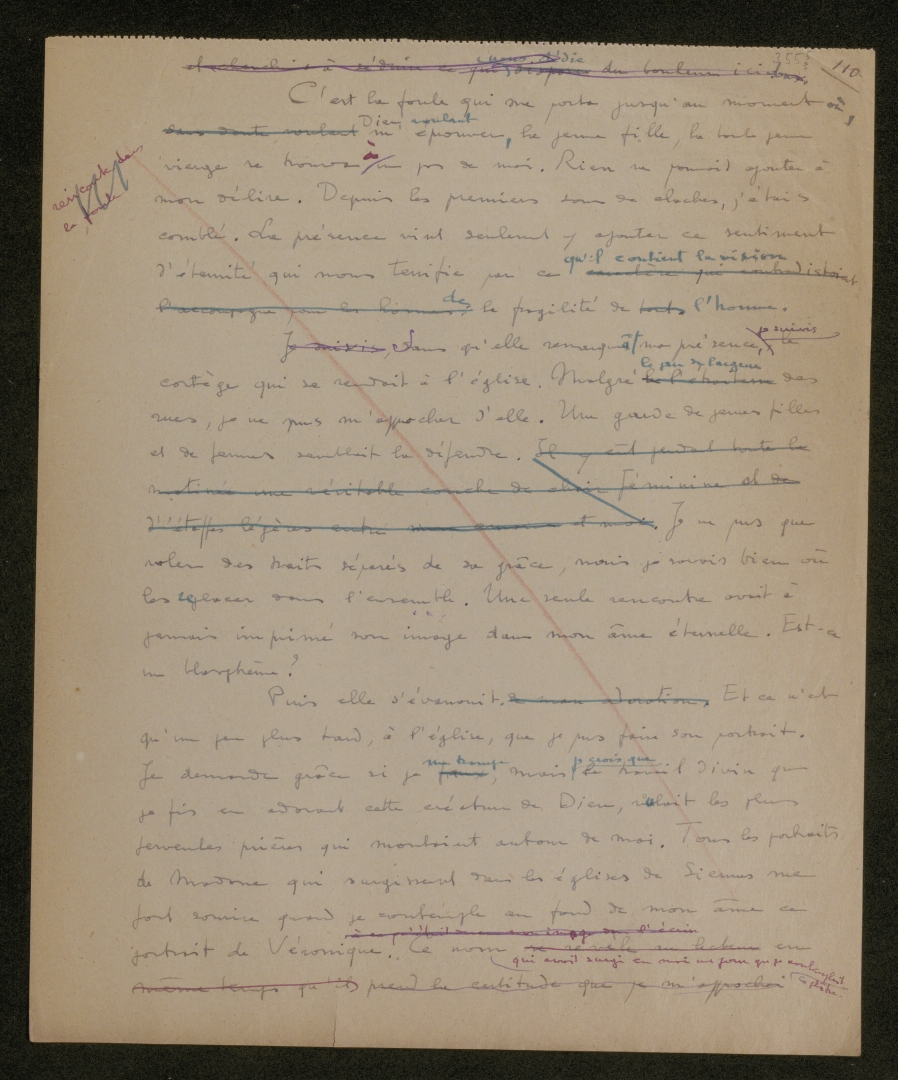 110
du bonheur ici-bas.
C'est la foule qui me porta jusqu'au moment où,
sans doute voulant Dieu voulant m'éprouver, la jeune fille, la toute jeune
vierge se trouva à un pas de moi. Rien ne pouvait ajouter à
mon délire. Depuis les premiers sons de cloches, j'étais
comblé. La présence vint seulement y ajouter ce sentiment
d'éternité qui nous terrifie par ce qu'il contient la vision caractère qui contredisait
l'accompagne pour les hommes, de la fragilité de toute l'homme.
Je suivis, sans qu'elle remarquât ma présence, je suivis le
cortège qui se rendait à l'église. Malgré le peu de largeur des
rues, je ne pus m'approcher d'elle. Une garde de jeunes filles
et de femmes semblait la défendre. Il y eut pendant toute la
matinée une véritable couche de chair féminine et de
d'étoffes légères entre et moi. Je ne pus que
voler des traits séparés de sa grâce, mais je savais bien où
les replacer dans l'ensemble. Une seule rencontre avait à
jamais imprimé son image dans mon âme éternelle. Est-ce
un blasphème?
Puis elle s'évanouit. à mon adoration. Et ce n'est
qu'un peu plus tard, à l'église, que je pus faire son portrait.
Je demande grâce si je me trompe, mais je crois que le travail divin que
je fis en adorant cette créature de Dieu, valait les plus
ferventes prières qui montaient autour de moi. Tous les portraits
de Madone qui surgissent dans les églises de Siennes me
font sourire quand je contemple au fond de mon âme ce
portrait de Véronique. Ce nom se révèle au lecteur en
qui avait surgi en moi un jour que je
même temps qu'il prend la certitude que je m'approchai